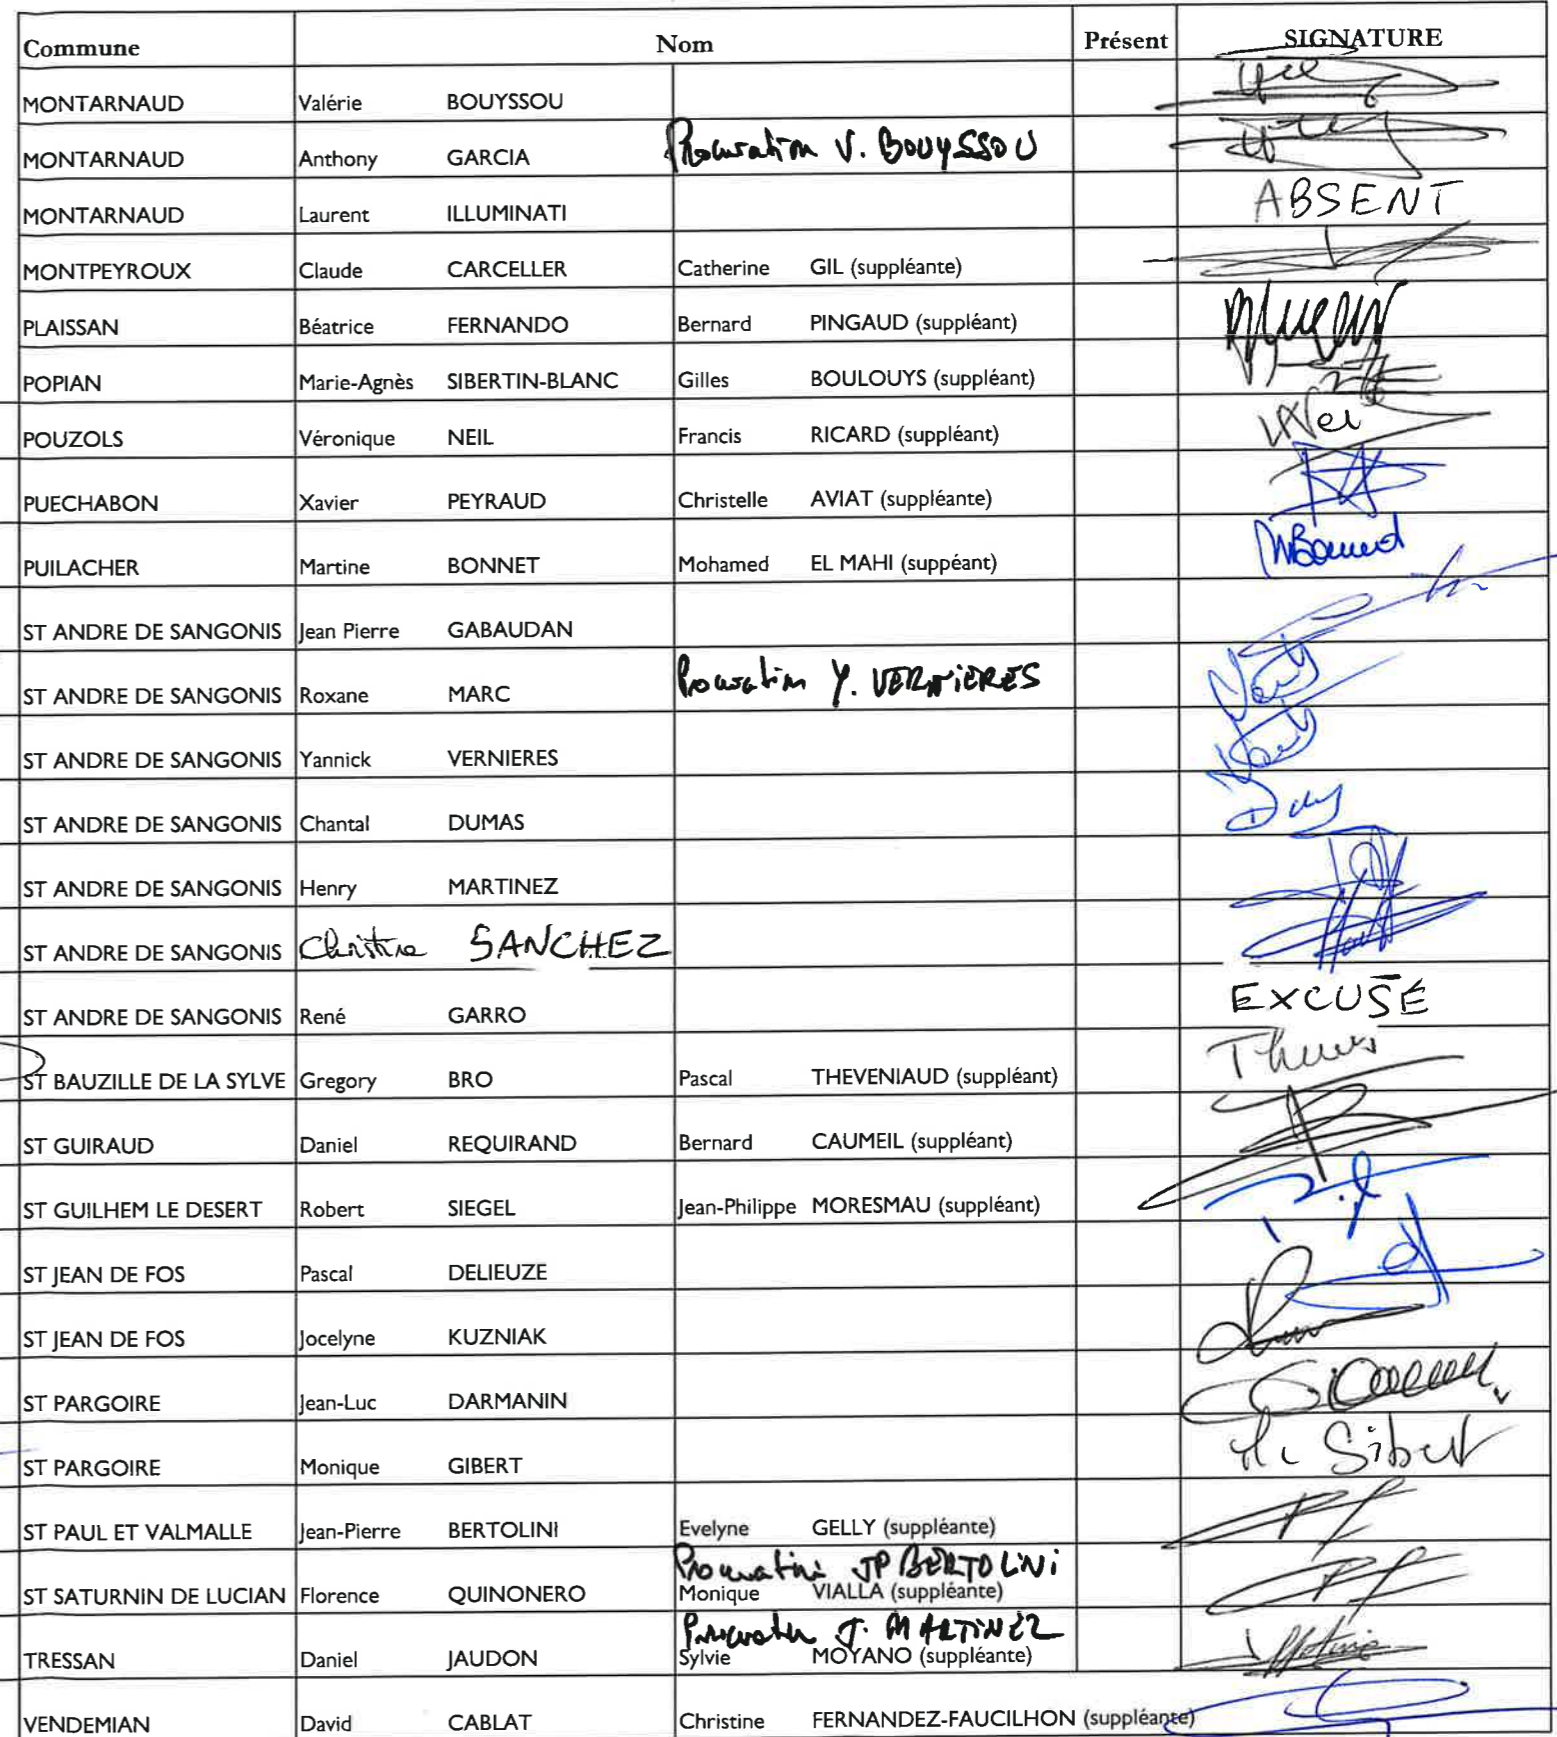 Commune Nom Présent SIGNATURE
MONTARNAUD Valérie BOUYSSOU
MONTARNAUD Anthony GARCIA Procuration V. BOUYSSOU
MONTARNAUD Laurent ILLUMINATI ABSENT
MONTPEYROUX Claude CARCELLER Catherine GIL (suppléante)
PLAISSAN Béatrice FERNANDO Bernard PINGAUD (suppléant)
POPIAN Marie-Agnès SIBERTIN-BLANC Gilles BOULOUYS (suppléant)
POUZOLS Véronique NEIL Francis RICARD (suppléant)
PUECHABON Xavier PEYRAUD Christelle AVIAT (suppléante)
PUILACHER Martine BONNET Mohamed EL MAHI (suppéant)
ST ANDRE DE SANGONIS Jean Pierre GABAUDAN
ST ANDRE DE SANGONIS Roxane MARC Procuration Y. VERNIERES
ST ANDRE DE SANGONIS Yannick VERNIERES
ST ANDRE DE SANGONIS Chantal DUMAS
ST ANDRE DE SANGONIS Henry MARTINEZ
ST ANDRE DE SANGONIS Christine SANCHEZ
ST ANDRE DE SANGONIS René GARRO EXCUSÉ
ST BAUZILLE DE LA SYLVE Gregory BRO Pascal THEVENIAUD (suppléant)
ST GUIRAUD Daniel REQUIRAND Bernard CAUMEIL (suppléant)
ST GUILHEM LE DESERT Robert SIEGEL Jean-Philippe MORESMAU (suppléant)
ST JEAN DE FOS Pascal DELIEUZE
ST JEAN DE FOS Jocelyne KUZNIAK
ST PARGOIRE Jean-Luc DARMANIN
ST PARGOIRE Monique GIBERT
ST PAUL ET VALMALLE Jean-Pierre BERTOLINI Evelyne GELLY (suppléante)
Procuration JP BERTOLINI
ST SATURNIN DE LUCIAN Florence QUINONERO Monique VIALLA (suppléante)
Procuration J. MARTINEZ
TRESSAN Daniel JAUDON Sylvie MOYANO (suppléante)
VENDEMIAN David CABLAT Christine FERNANDEZ-FAUCILHON (suppléante)